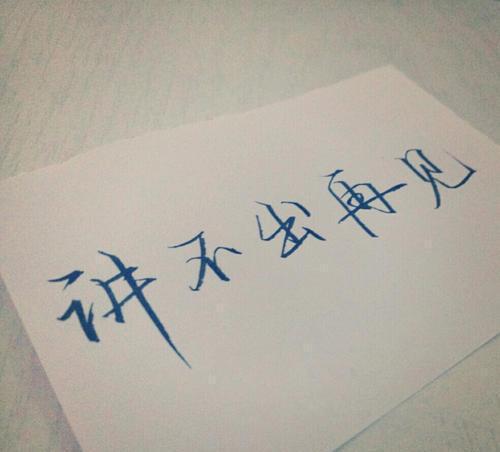 讲不出再见